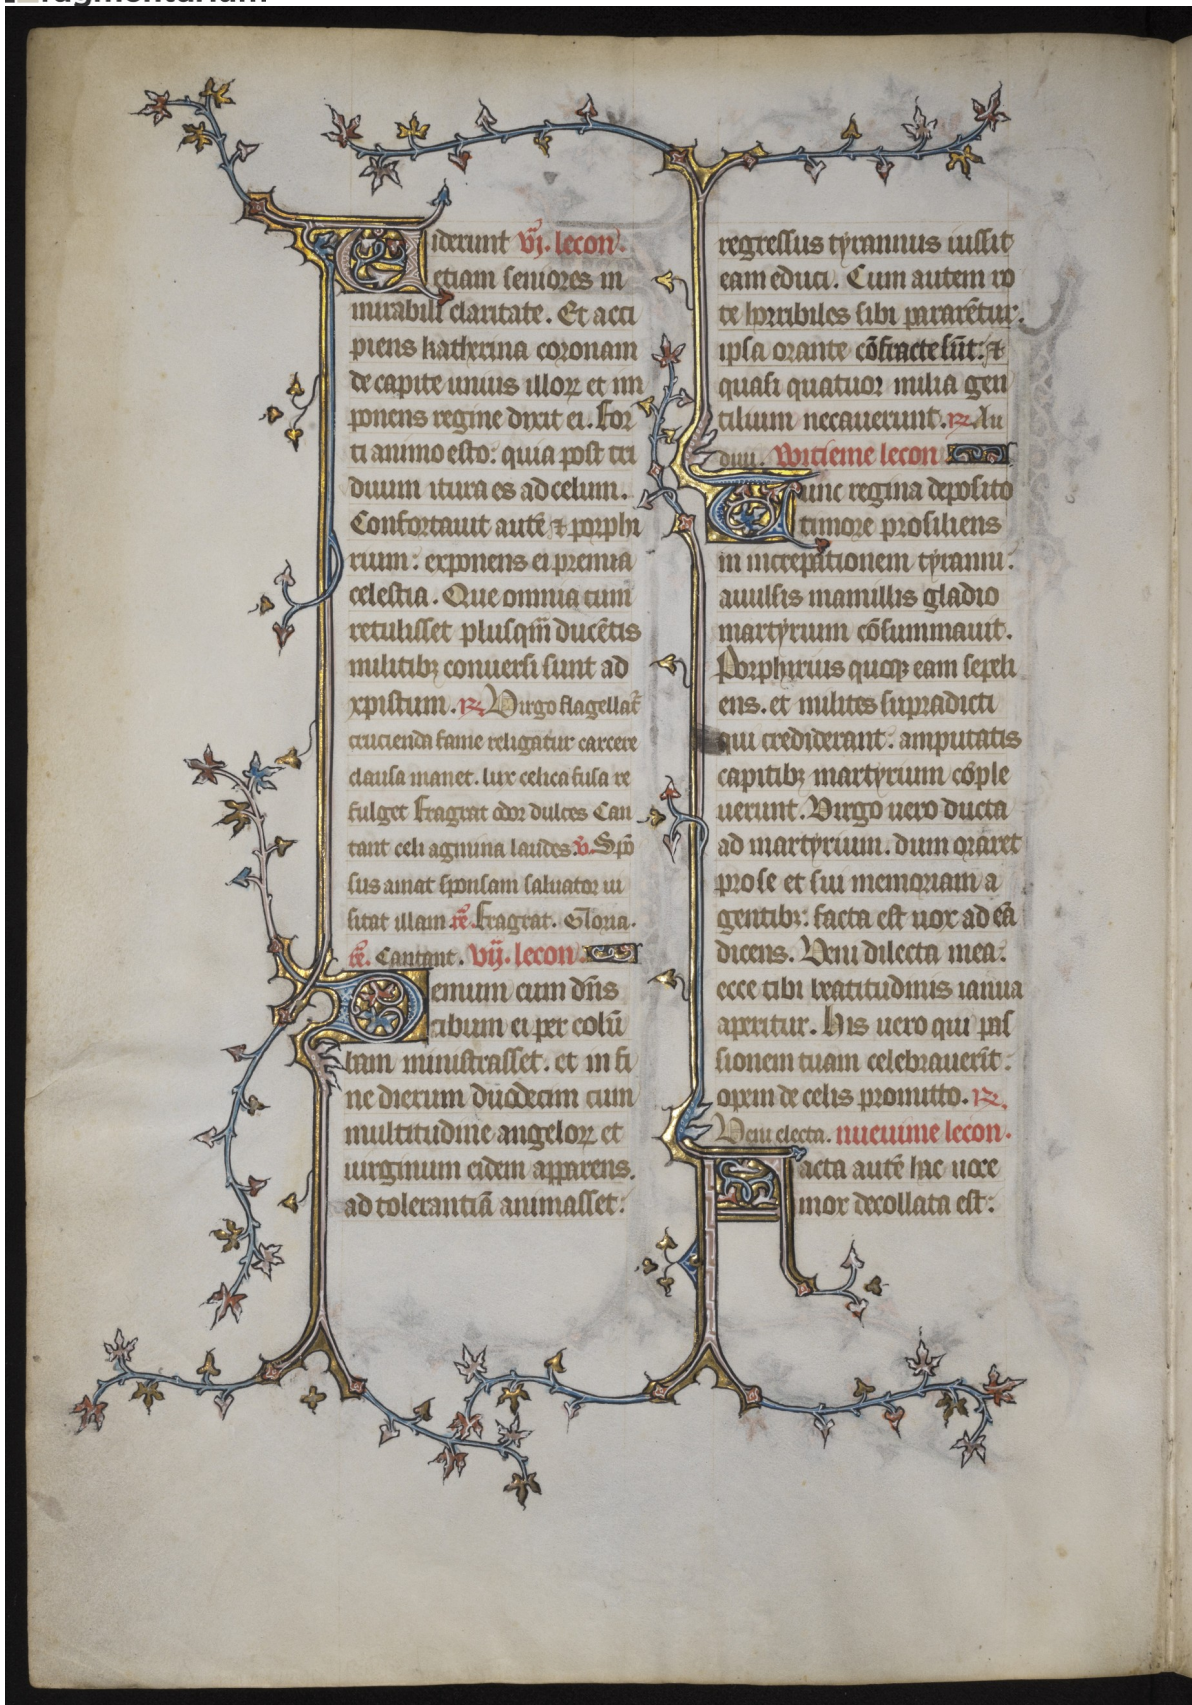 Uiderunt vj. lecon.
etiam seniores in
mirabili claritate. Et acci
piens katherina coronam
de capite unius illoꝝ et im
ponens regine dixit ei. For
ti animo esto: quia post tri
duum itura es ad celum.
Confortauit autē ⁊ porphi
rium: exponens ei premia
celestia. Que omnia cum
retulisset plusqm̄ ducētis
militibꝫ conuersi sunt ad
xpistum. ℟ Virgo flagellat᷑
crucienda fame religatur carcere
clausa manet. lux celica fusa re
fulget Fragrat odor dulces Can
tant celi agmina laudes ℣. Spō
sus amat sponsam saluator ui
sitat illam rē. Fragrat. Gloria.
rē. Cantant. vij. lecon.
Demum cum dn̄s
cibum ei per colū
bam ministrasset. et in fi
ne dierum duodecim cum
multitudine angeloꝝ et
uirginum eidem apparens.
ad tolerantiā animasset:
regressus tyrannus iussit
eam educi. Cum autem ro
te horribiles sibi pararētur.
ipsa orante cōfracte sūt: ⁊
quasi quatuor milia gen
tilium necauerunt. ℟. Au
diui. witieme lecon
Tunc regina deposito
timore prosiliens
in increpationem tyranni:
auulsis mamillis gladio
martyrium cōsummauit.
Porphirius quoqꝫ eam sepeli
ens. et milites supradicti
qui crediderant: amputatis
capitibꝫ martyrium cōple
uerunt. Virgo uero ducta
ad martyrium. dum oraret
pro se et sui memoriam a
gentibꝫ: facta est uox ad eā
dicens. Veni dilecta mea:
ecce tibi beatitudinis ianua
aperitur. His uero qui pas
sionem tuam celebrauerīt:
opem de celis promitto. ℟.
Veni electa. nueuime lecon.
Facta autē hac uoce
mox decollata est: